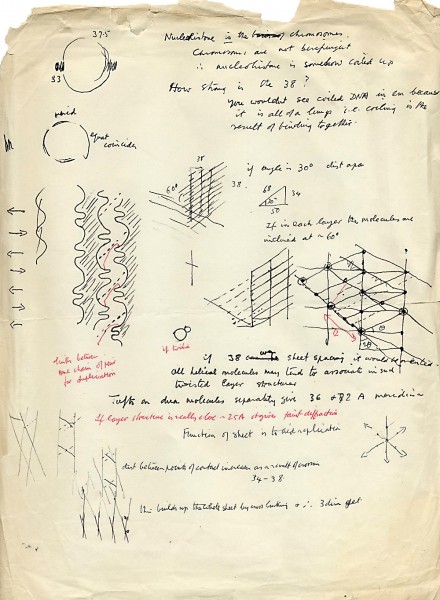 37.5
33
Nucleohistone is the chromosomes.
Chromosomes are not birefringent
∴ nucleohistone is somehow coiled up
How strong is the 38?
You wouldnt see coiled DNA in em because
it is all of a lump i.e. coiling is the
result of binding together.
equat
coincides
38
60°
if angle is 30° dist apa
38.
68
34
30°
50
If in each layer the molecules are
inclined at ~60°
links between
one chain of
for duplication
if twice
if 38 sheet spacing it would be
all helical molecules may tend to associate in such
twisted layer structures
Tufts on dna molecules separately give 36 & 72 A meridian
If layer structure is really close ~25A it gives faint diffraction
Function of sheet is to aid replication
dist between points of contact increases as a result of
34-38
this builds up the whole sheet by cross linking ∴ 3 dim effect